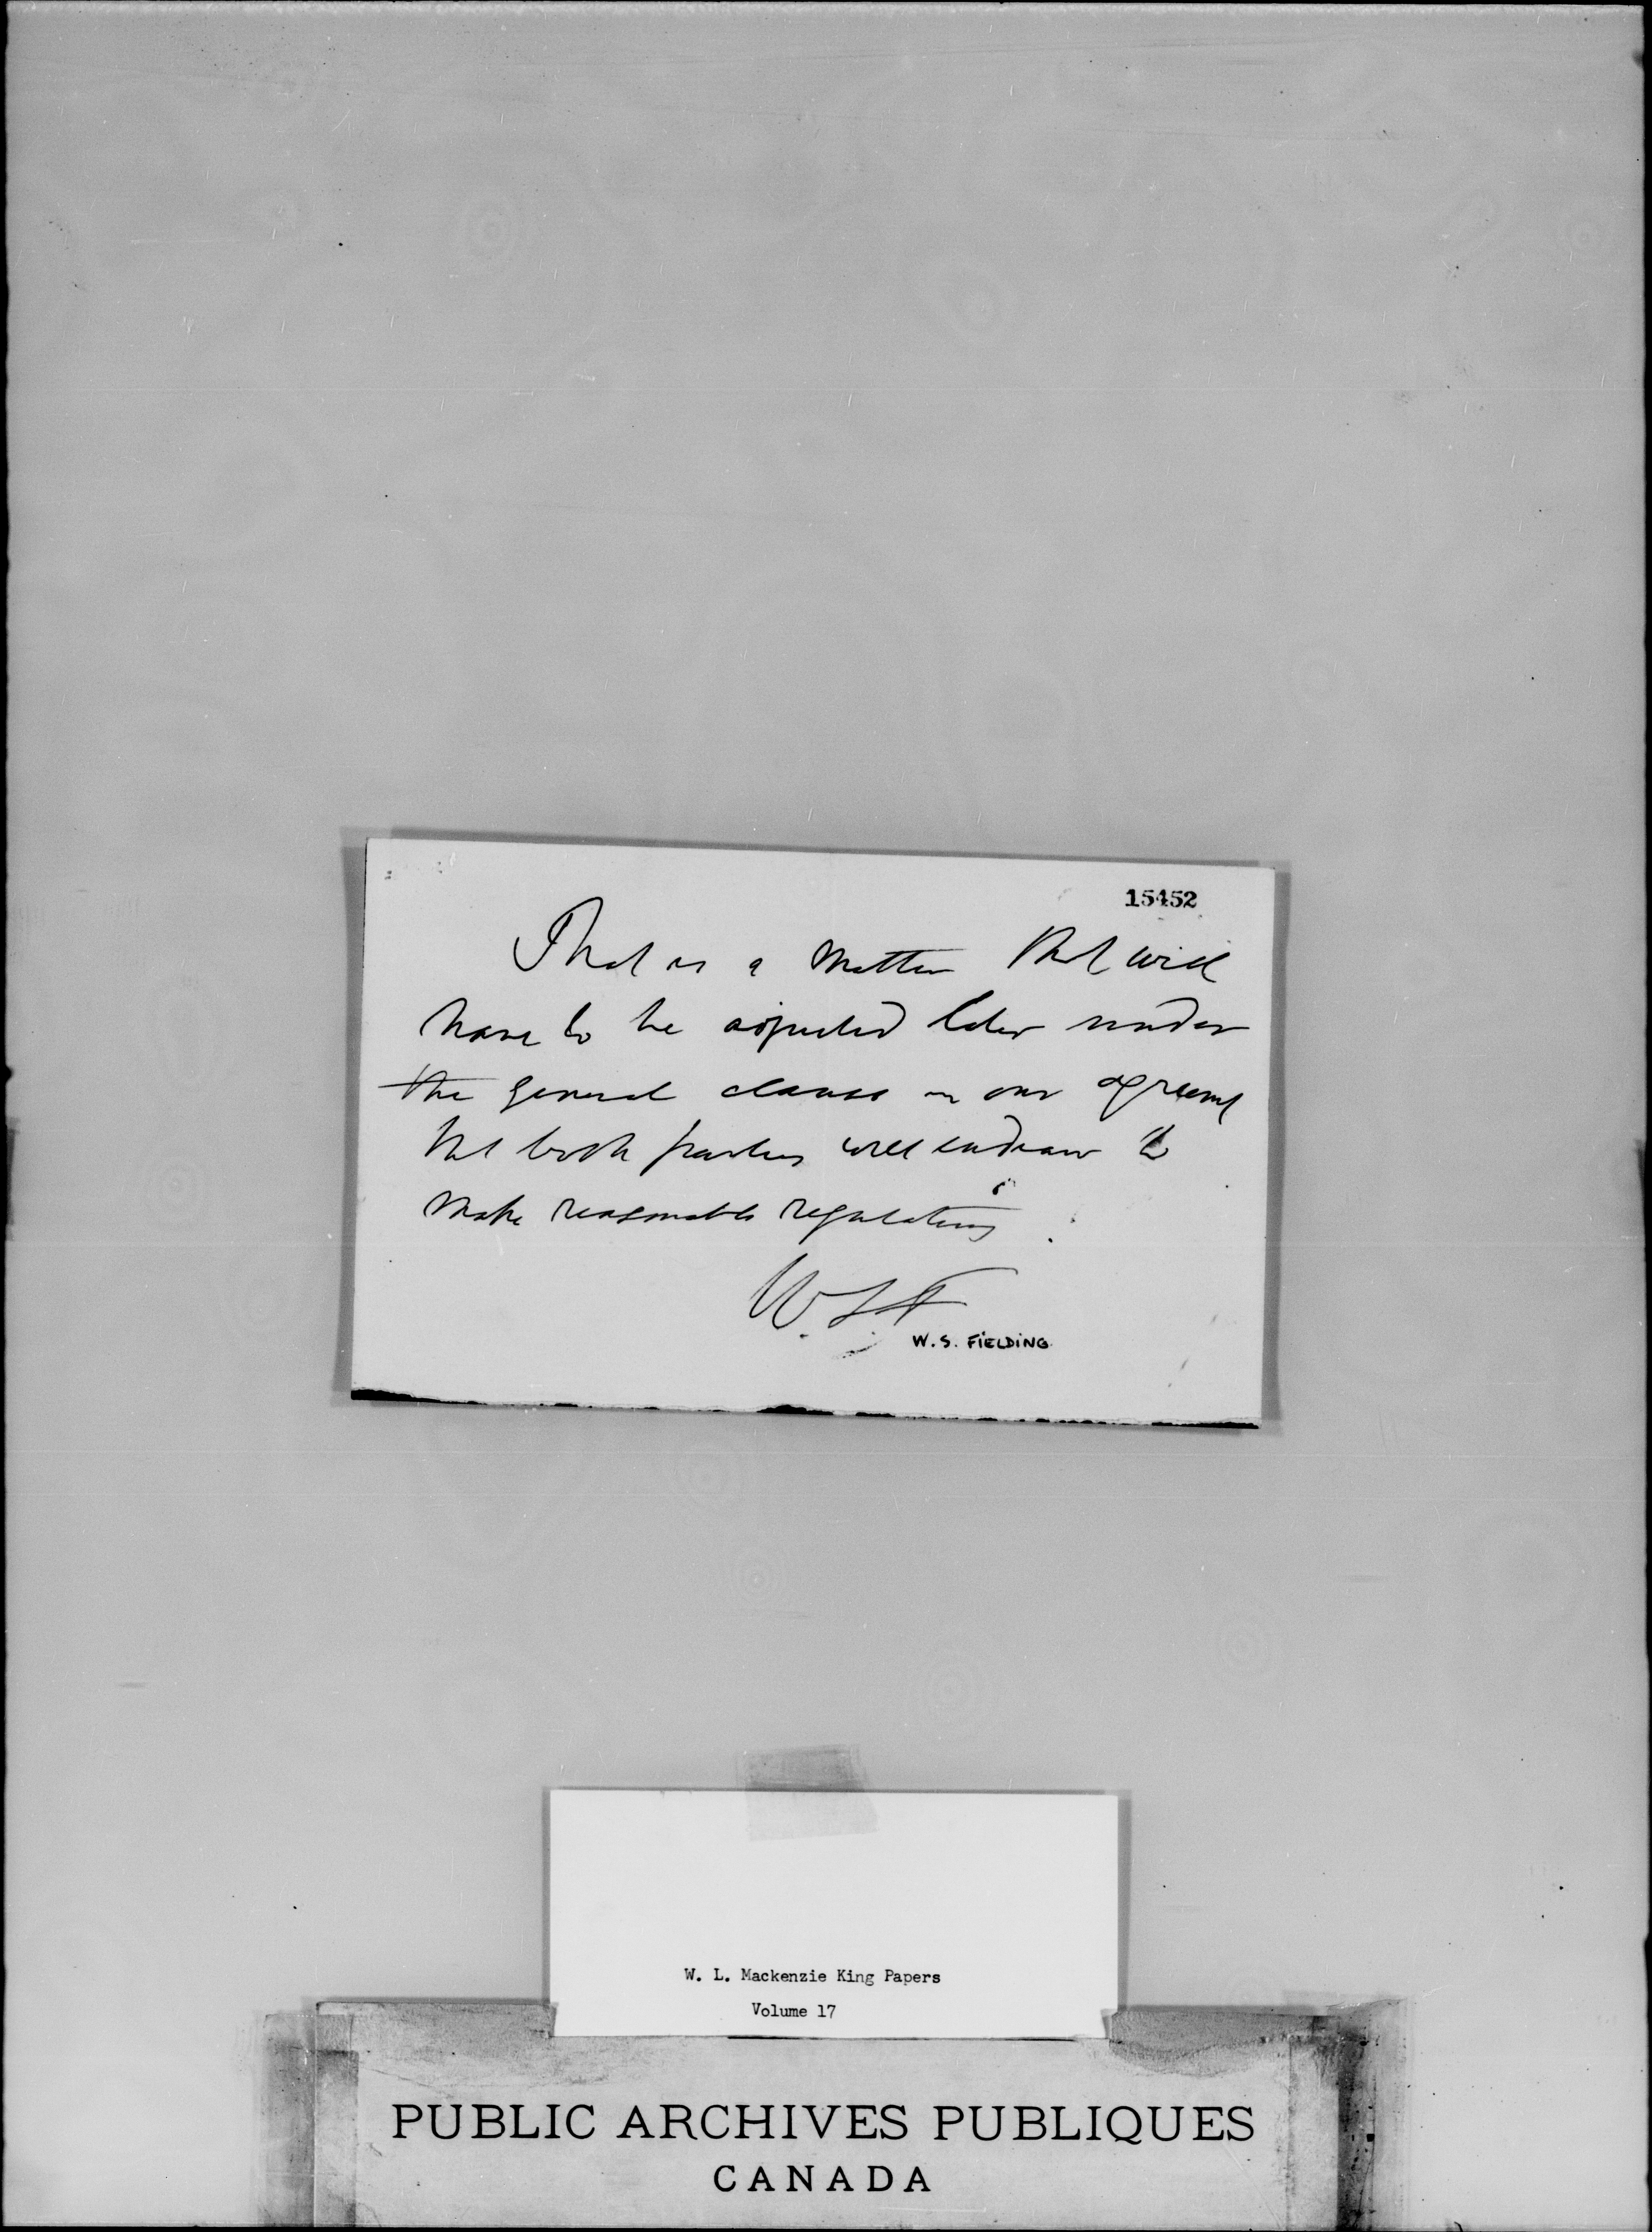 15452
That is a matter that will
have to be adjusted later under
the general clause in our agreemt
that both parties will endeavor to
make reasonable regulations.
WSF
W.S. FIELDING
W. L. Mackenzie King Papers
Volume 17
PUBLIC ARCHIVES PUBLIQUES
CANADA